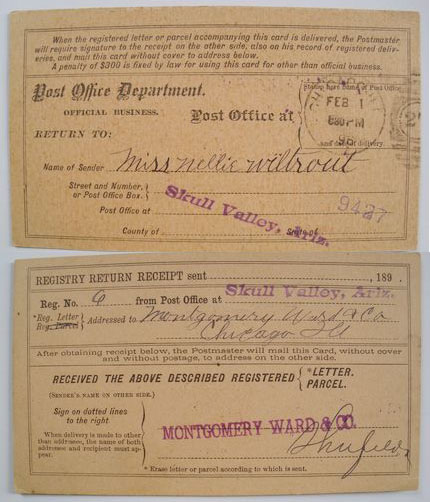 When the registered letter or parcel accompanying this card is delivered, the Postmaster
will require signature to the receipt on the other side, also on his record of registered deliv-
eries, and mail this card without cover to address below.
A penalty of $300 is fixed by law for using this card for other than official business.
Post Office Department.
OFFICIAL BUSINESS.
Post Office at
FEB 1
830 PM
and date of delivery.
RETURN TO:
Name of Sender Miss Nellie Wiltrout
Street and Number,
or Post Office Box.
Skull Valley, Ariz.
9427
Post Office at
County of State of
REGISTRY RETURN RECEIPT sent , 189 .
Reg. No. 6 from Post Office at Skull Valley, Ariz.
*Reg. Letter
Reg. Parcel
Addressed to Montgomery Ward & Co
Chicago Ill
After obtaining receipt below, the Postmaster will mail this Card, without cover
and without postage, to address on the other side.
RECEIVED THE ABOVE DESCRIBED REGISTERED *LETTER.
PARCEL.
(SENDER'S NAME ON OTHER SIDE.)
Sign on dotted lines
to the right.
When delivery is made to other
than addressee, the name of both
addressee and recipient must ap-
pear.
MONTGOMERY WARD & CO.
* Erase letter or parcel according to which is sent.